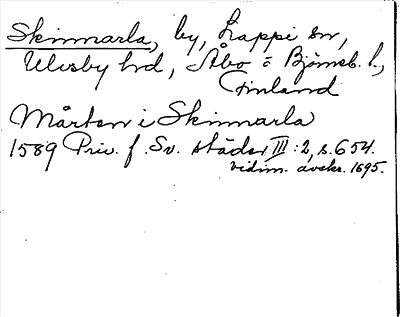 Skinnarla, by, Lappi sn,
Ulvsby hrd, Åbo o Björneb. l.,
Finland
Mårten i Skinnarla
1589 Priv. f. Sv. städer III:2, s. 654.
vidim. avskr. 1695.